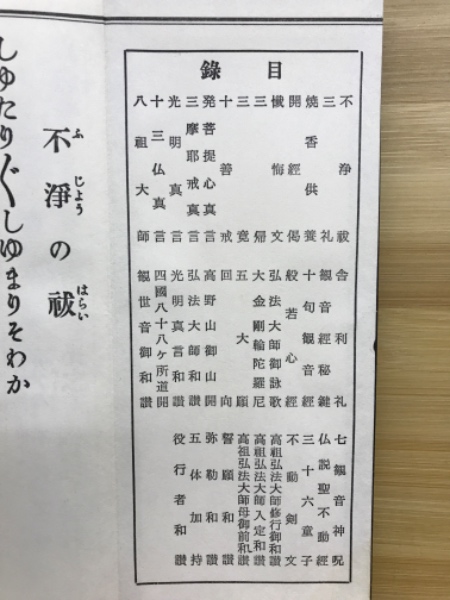 目錄
不淨祓
三礼
燒香供養
開經偈
懺悔文
三帰
三竟
十善戒
発菩提心真言
三摩耶戒真言
光明真言
十三仏真言
八祖大師
舎利礼
観音經秘鍵
十句観音經
般若心經
弘法大師御詠歌
大金剛輪陀羅尼
五大願
回向
高野山御山開
弘法大師和讃
光明真言和讃
四國八十八ケ所道開
観世音御和讃
七観音神呪
仏説聖不動經
三十六童子
不動劍文
高祖弘法大師修行御和讃
高祖弘法大師入定和讃
高祖弘法大師母御前和讃
誓願和讃
弥勒和讃
五体加持
役行者和讃
ふじょう はらい
不淨の祓
しゆたり〴〵しゆまりそわか